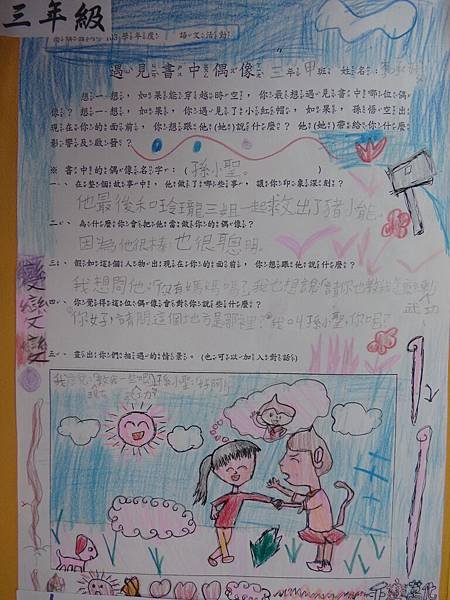 三年級
103學年度 語文活動
遇見書中偶像 三年甲班 姓名：
想一想，如果能穿越時空，你最想遇見書中哪位偶
像？想一想，如果，你遇見了小紅帽，如果，孫悟空出
現在你的面前，你想跟他(她)說什麼？他(她)帶給你什麼
影響及啟發？
※書中的偶像名字：(孫小聖。)
一、在整個故事中，他做了哪些事，讓你印象深刻？
他最後和玲瓏三姐一起救出了豬小能。
二、為什麼你會把他當做你的偶像？
因為他很棒也很聰明。
三、假如這個人物出現在你的面前，你想跟他說什麼？
我想問他：你有媽媽嗎？我也想請你也教我
武功
四、你覺得這位偶像會對你說些什麼？
你好，請問這個地方是那裡？我叫孫小聖，你呢？
五、畫出你們相遇的情景。(也可以加入對話)
孫小聖：好阿